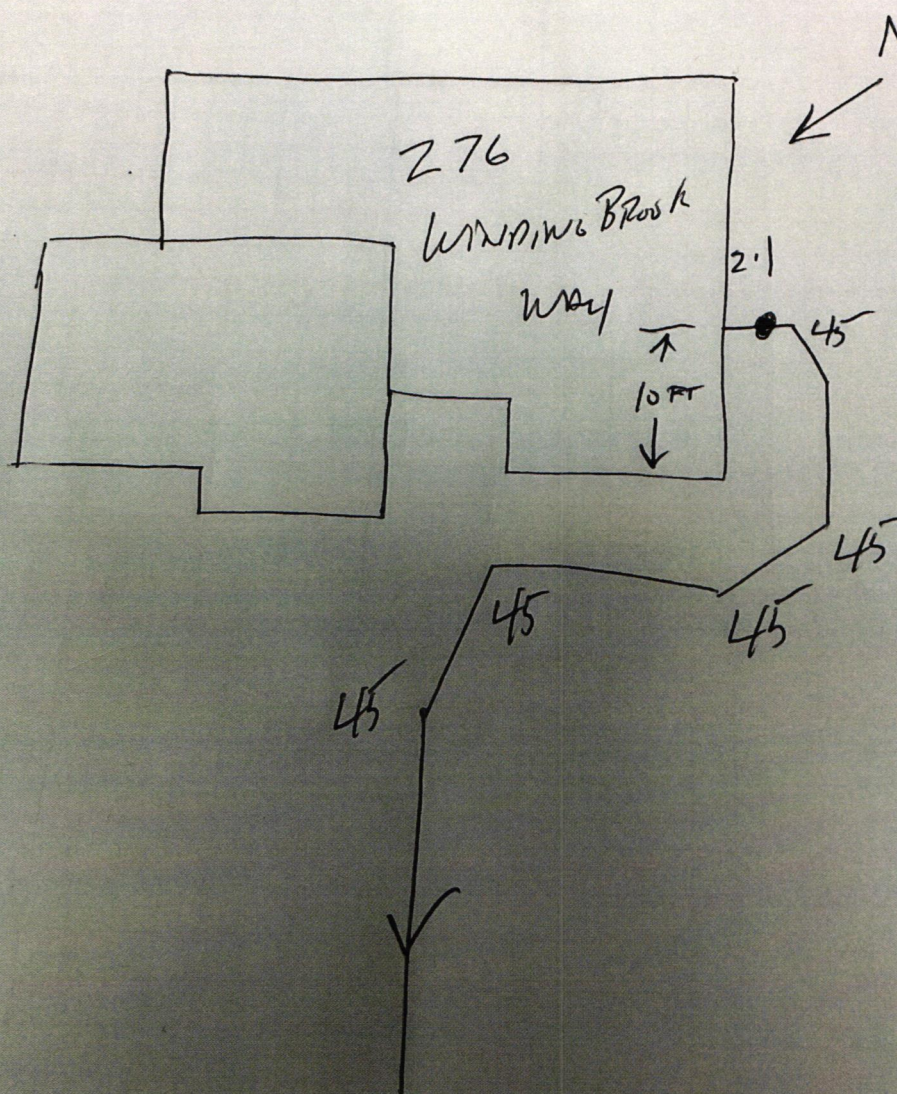 N
276
WINDING BROOK
WAY
2.1
45
10 FT
45
45
45
45